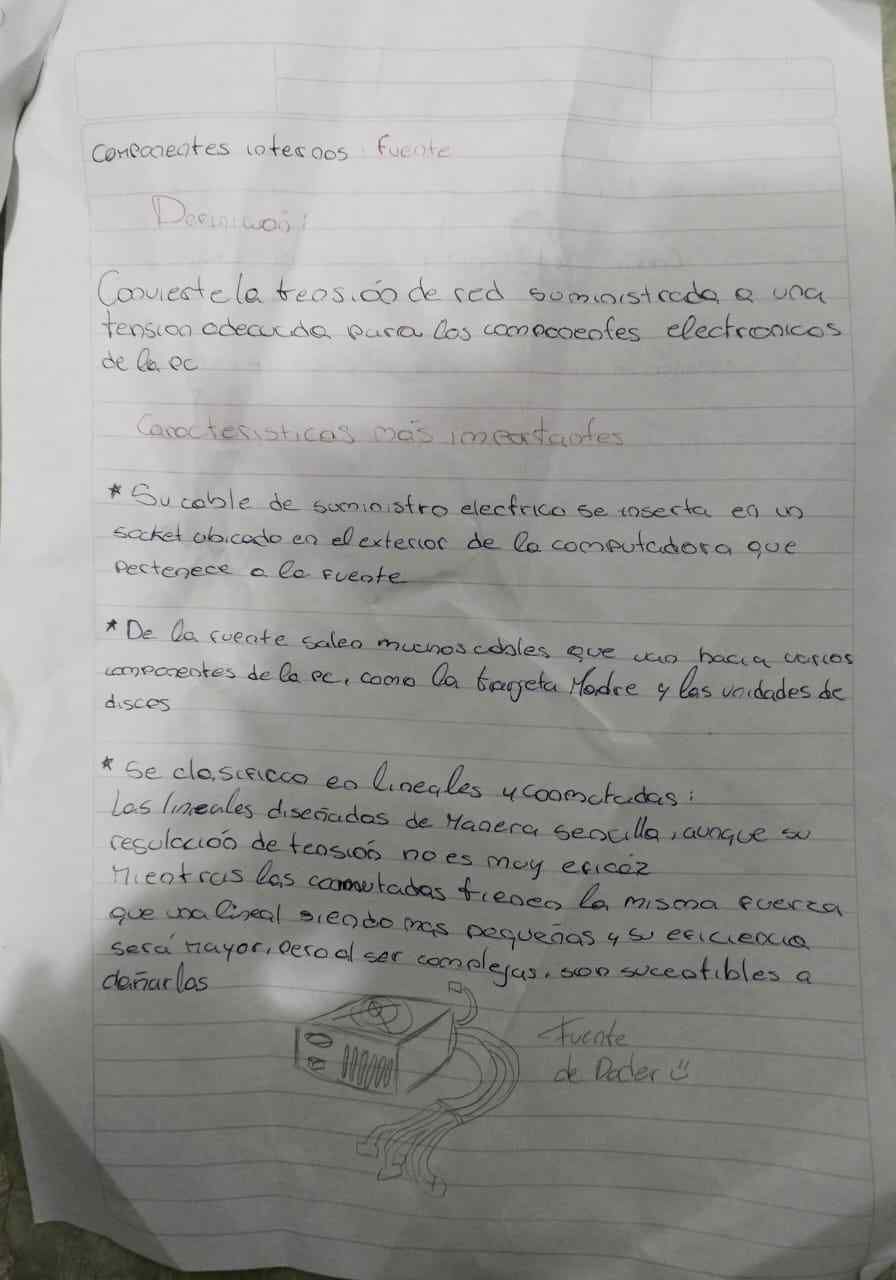 Componentes internos: fuente
Definición:
Convierte la tensión de red suministrada a una
tension adecuada para los componentes electronicos
de la pc
Caracteristicas más importantes
* Su cable de suministro electrico se inserta en un
socket ubicado en el exterior de la computadora que
pertenece a la fuente
* De la fuente salen muchos cables que van hacia varios
componentes de la pc, como la targeta Madre y las unidades de
discos
* Se clasifica en lineales y conmutadas:
Las lineales diseñadas de Manera sencilla, aunque su
regulación de tensión no es muy eficáz
Mientras las conmutadas tienen la misma fuerza
que una lineal siendo mas pequeñas y su eficiencia
será mayor, pero al ser complejas, son suceptibles a
dañarlas
Fuente
de Poder